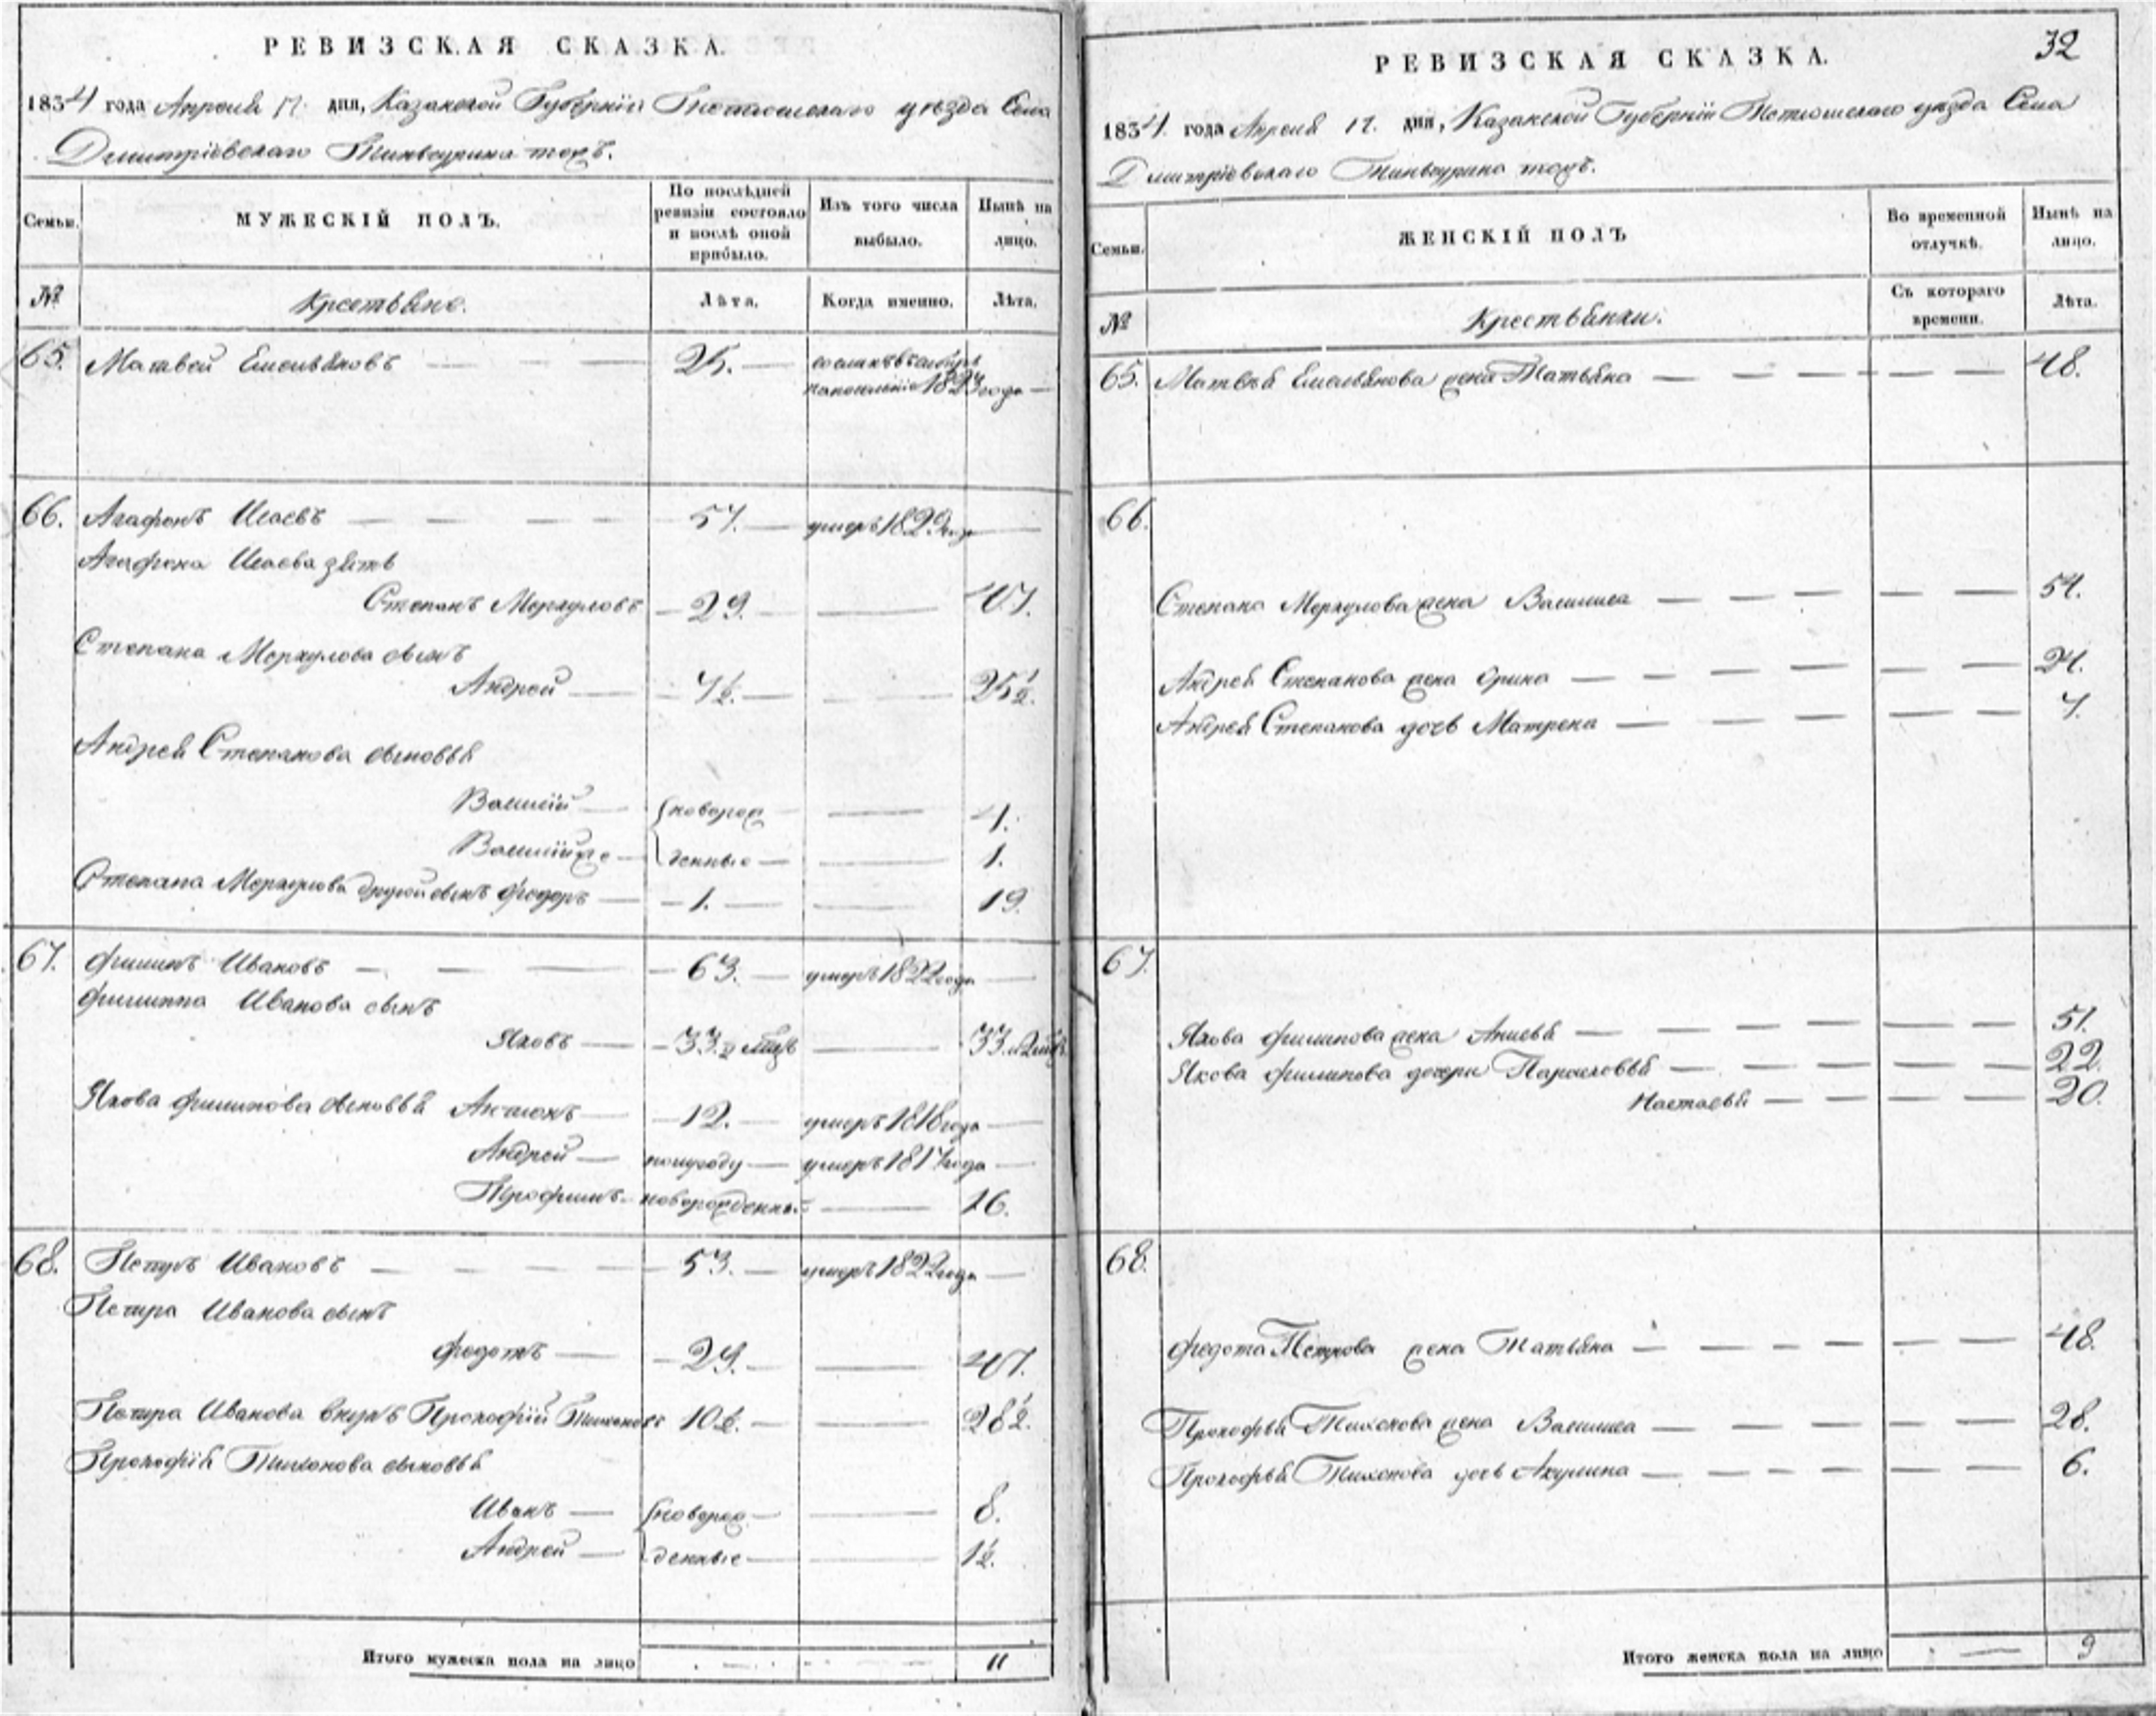 РЕВИЗСКАЯ СКАЗКА.
1834 года Апреля 17. дня, Казанской Губернии Тетюшскаго уезда Села
Дмитріевскаго тожъ.
Семьи.
МУЖЕСКІЙ ПОЛЪ.
По послѣдней ревизіи состояло и послѣ оной прибыло.
Изъ того числа выбыло.
Нынѣ на лицо.
№
Крестьяне.
Лѣта.
Когда именно.
Лѣта.
65. Матвей Емельяновъ 25. сосланъ въ сибирь
на поселеніе 1823 года
66. Агафонъ Исаевъ 57. умеръ 1829 года
Агафона Исаева зять
Степанъ Меркуловъ 29. 47.
Степана Меркулова сынъ
Андрей 7½. 25½.
Андрея Степанова сыновья
Василій новорож 4.
Василій же денные 1.
Степана Меркулова другой сынъ Федоръ 1. 19.
67. Филипъ Ивановъ 63. умеръ 1822 года
Филиппа Иванова сынъ
Яковъ 33. 33.
Якова Филипова сыновья 12. умеръ 1818 года
Андрей полугоду умеръ 1817 года
новорожденный 16.
68. Петръ Ивановъ 53. умеръ 1822 года
Петра Иванова сынъ
Федотъ 29. 47.
Петра Иванова внукъ Прокофій Тихоновъ 10½. 28½.
Прокофія Тихонова сыновья
Иванъ новорож 8.
Андрей денные 1½.
Итого мужеска пола на лицо 11
32
РЕВИЗСКАЯ СКАЗКА.
1834. года Апреля 17. дня, Казанской Губерніи Тетюшскаго уезда Села
Дмитріевскаго тожъ.
Семьи.
ЖЕНСКІЙ ПОЛЪ
Во временной отлучкѣ.
Нынѣ на лицо.
№
Крестьянки.
Съ котораго времени.
Лѣта.
65. Матвея Емельянова жена Татьяна 48.
66.
Степана Меркулова жена Василиса 54.
Андрея Степанова жена Орина 24.
Андрея Степанова дочь Матрена 7.
67.
Якова Филипова жена Анисья 51.
Якова Филипова дочери 22.
Настасья 20.
68.
Федота Петрова жена Татьяна 48.
Прокофья Тихонова жена Василиса 28.
Прокофья Тихонова дочь Акулина 6.
Итого женска пола на лицо 9